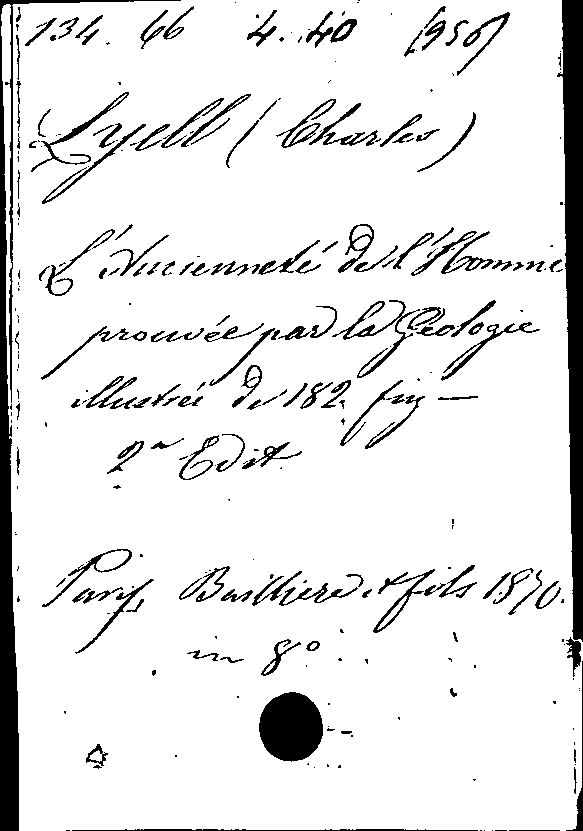 134. 66 4. 40 (956)
Lyell (Charles)
L'Ancienneté de l'Homme
prouvée par la Géologie
illustrée de 182. fig —
2ª Edit.
Paris, Baillière et fils 1870.
in 8º